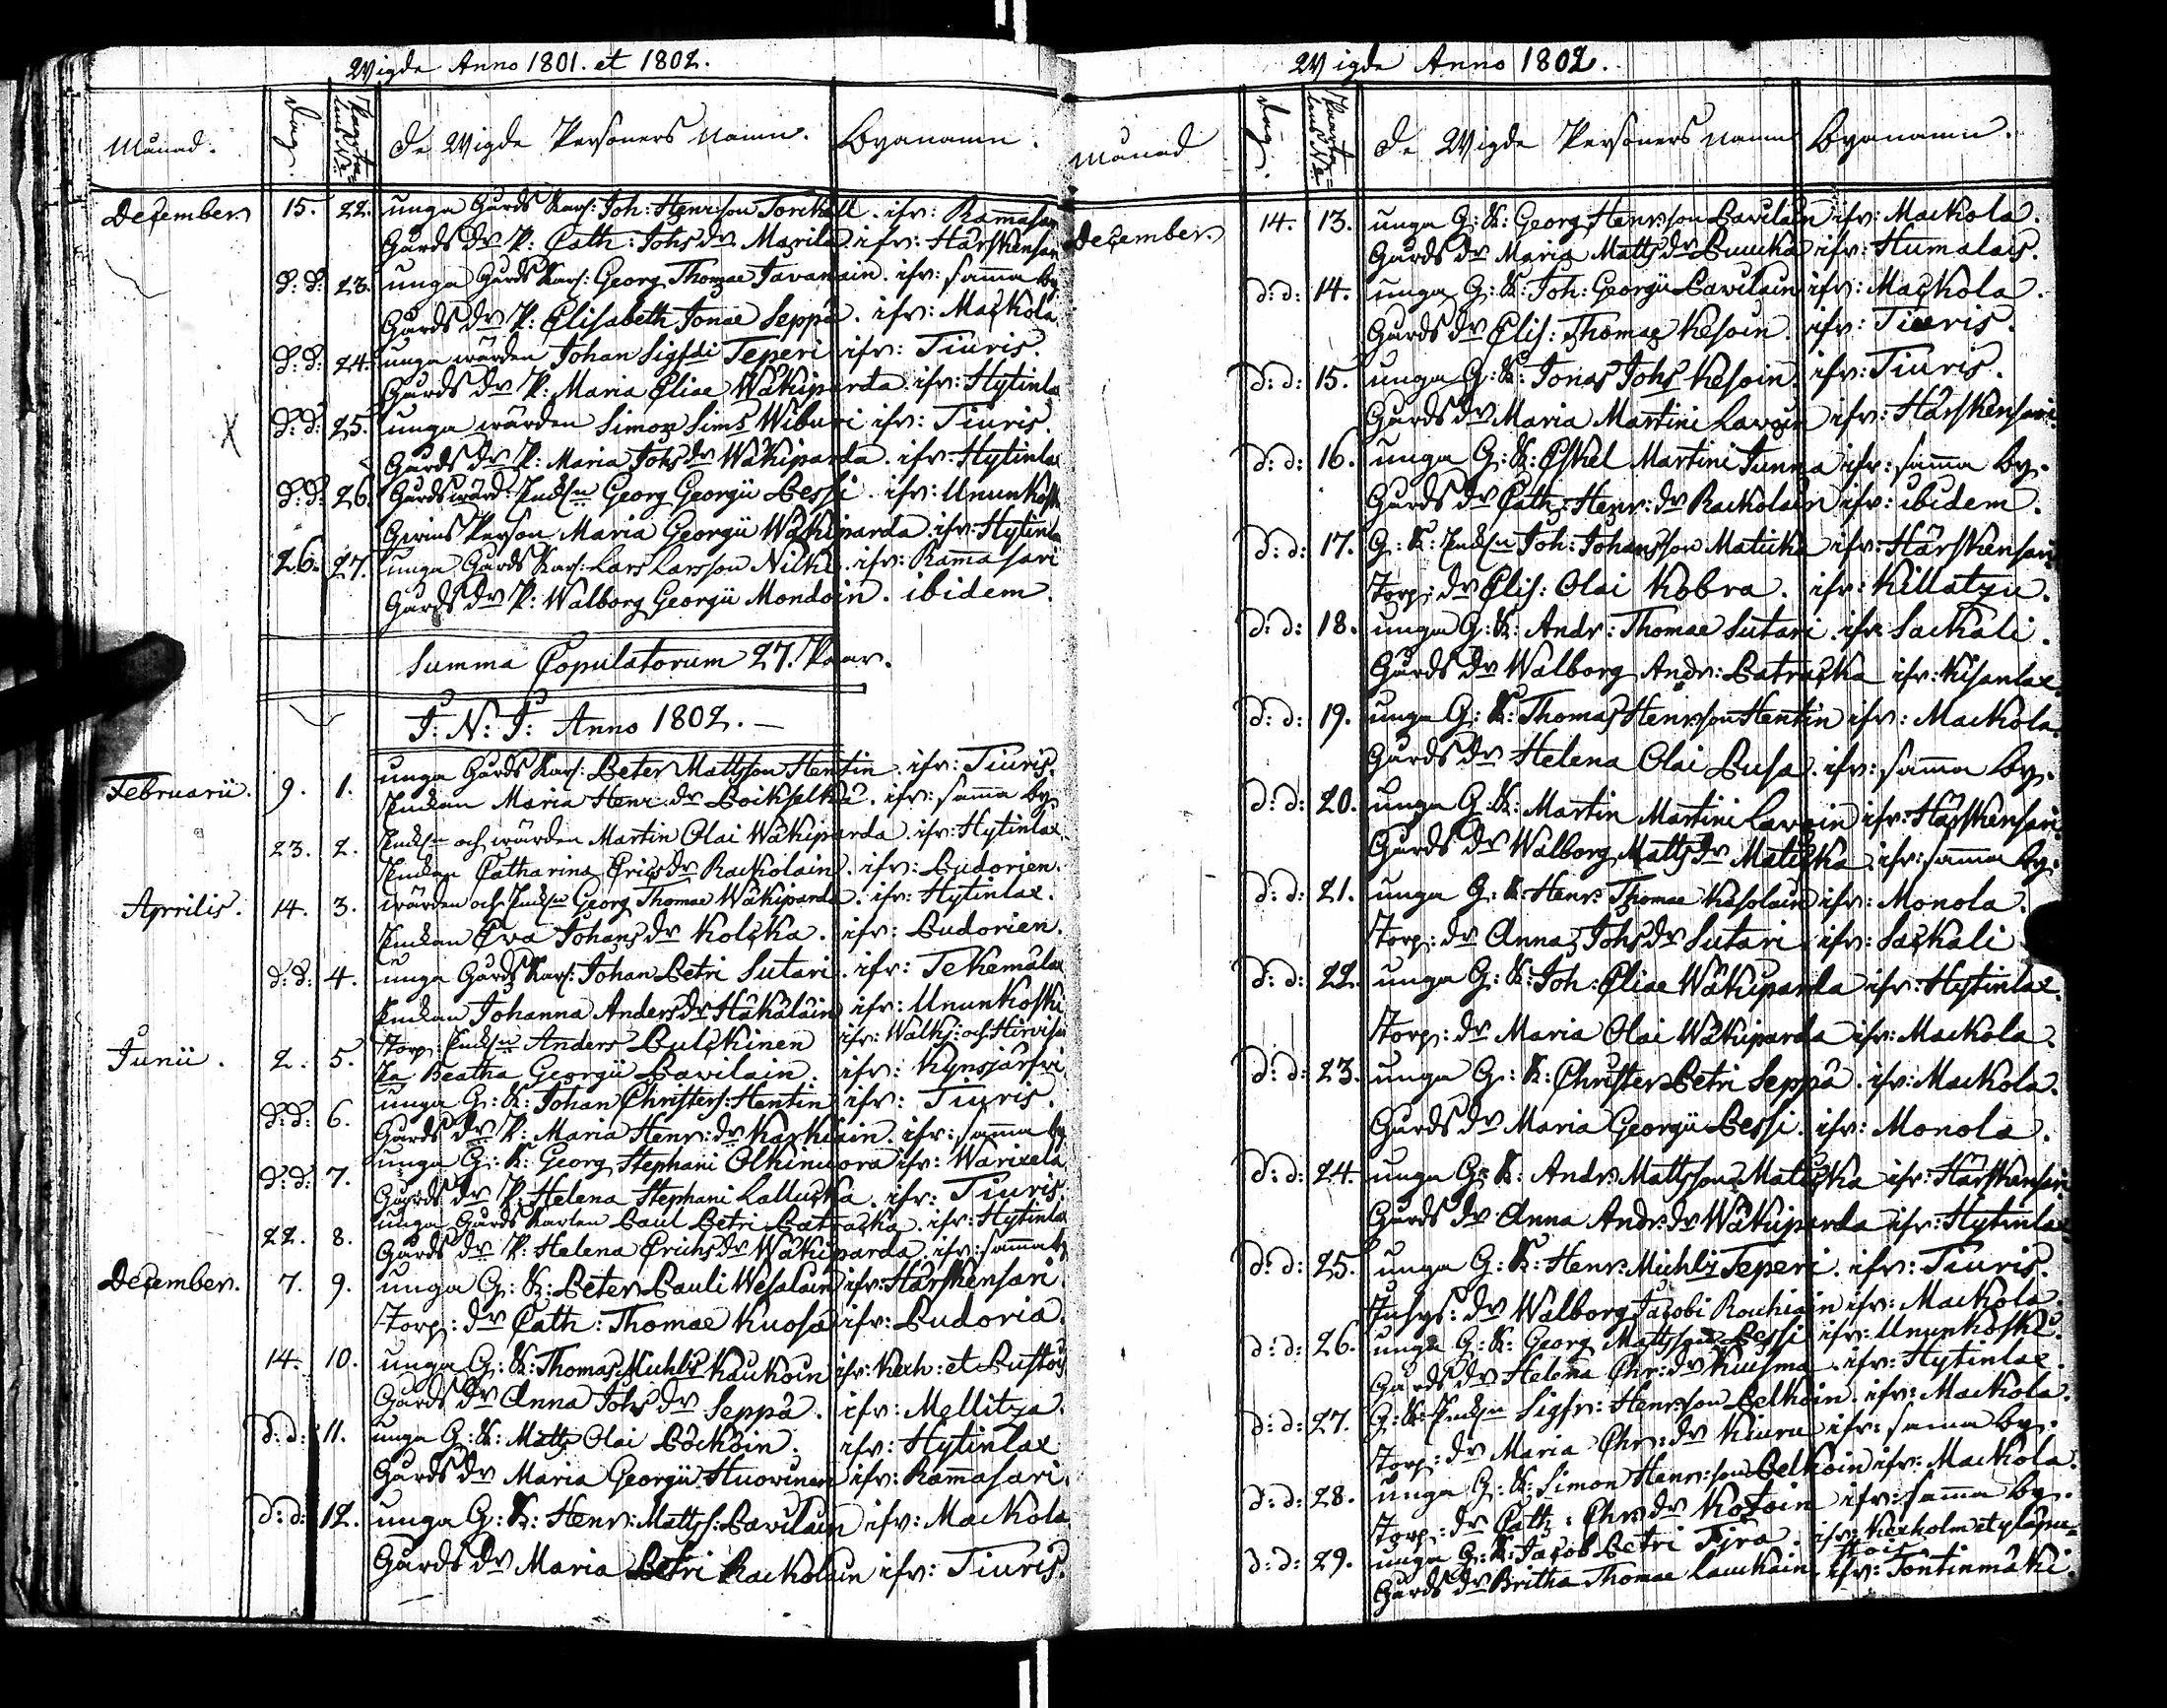 Wigde Anno 1801. et 1802.
Månad. Dag. Paarta= lens No. De Wigde Personers Namn. Byanamn.
December 15. 22. unga Gårds Karl: Joh: Henr:son Torikall. ifr: Ram̄asari
Gårds dr P: Cath: Johs dr Marila. ifr: Härskensari
d: d: 23. unga Gårds Karl: Georg Thomae Javanain. ifr: sam̄a by
Gårds dr P: Elisabeth Jonae Seppä. ifr: Mackola
d: d: 24. unga wärden Johan Sigfdi Teperi ifr: Tiuris.
Gårds dr P: Maria Eliae Wäkiparta. ifr: Hytinlax
d: d: 25. unga wärden Simon Sims Wiburi ifr: Tiuris.
Gårds dr P: Maria Johs dr Wäkiparda. ifr: Hytinlax
d: d: 26. Gårds wärd: Enkln Georg Georgii Pessi. ifr: Ununkoski
Person Maria Georgii Wäkiparda ifr: Hytinla
26. 27. unga Gårds Karl: Lars Larsson Nilki. ifr: Ram̄asari
Gårds dr P: Walborg Georgii Mondoin. ibidem.
Summa Copulatorum 27. Paar.
J: N: J: Anno 1802.
Februarii. 9. 1. unga Gårds Karl: Peter Mattsson Hentin. ifr: Tiuris.
Enkan Maria Henr. dr Poikselkä. ifr: sam̄a by
23. 2. Enkln och wärden Martin Olai Wäkiparda. ifr: Hytinlax.
Enkan Catharina Erics dr Rackolain. ifr: Pudorien.
Aprilis. 14. 3. wärden och Enkln Georg Thomae Wäkiparda. ifr: Hytinlax.
Enkan Eva Johans dr Kolcka. ifr: Pudorien.
d: d: 4. unga Gårds Karl: Johan Petri Sutari. ifr: Tekemälax
Enkan Johanna Anders dr Häkäläin ifr: Ununkoski
Junii. 2. 5. Torp: Enkln Anders Pulckinen ifr: Walkj: och Hirvis
Beatha Georgii Pavilain. ifr: Kynsjärfvi
d: d: 6. unga G: K: Johan Christers: Hentin ifr: Tiuris.
Gårds dr P: Maria Henr: dr Karkiain. ifr: sam̄a by
d: d: 7. unga G: K: Georg Stephani Olkinuora ifr: Warixela
Gårds dr P: Helena Stephani Lallucka. ifr: Tiuris
22. 8. unga Gårds Karlen Paul Petri Patracka. ifr: Hytinlax
Gårds dr P: Helena Erichs dr Wäkiparda. ifr: sam̄a by
December. 7. 9. unga G: K: Peter Pauli Wesalain ifr: Härskensari.
Torp: dr Cath: Thomae Kuosa ifr: Pudoria.
14. 10. unga G: K: Thomas Michls Kaukoin ifr: Kexh: et Pustois
Gårds dr Anna Johs dr Seppä. ifr: Mellitza.
d: d: 11. unga G: K: Matts Olai Pöcköin. ifr: Hytinlax
Gårds dr Maria Georgii Huovinen ifr: Ram̄asari.
d: d: 12. unga G: K: Henr: Matts: Pavilain ifr: Mackola
Gårds dr Maria Petri Rackolain ifr: Tiuris.
Wigde Anno 1802.
Månad Dag. Paarta= lens No. De Wigde Personers namn Byanamn.
December. 14. 13. unga G: K: Georg Henr:son Pavilain ifr: Mackola.
Gårds dr Maria Matts dr Puucka ifr: Humalais.
d: d: 14. unga G: K: Joh: Georgii Pavilain ifr: Mackola.
Gårds dr Elis: Thomae Kesoin. ifr: Tiuris.
d: d: 15. unga G: K: Jonas Johs Kesoin. ifr: Tiuris.
Gårds dr Maria Martini Lavoin ifr: Härskensari.
d: d: 16. unga G: K: Eskel Martini Junna ifr: sam̄a by.
Gårds dr Cath: Henr: dr Rackolain ifr: ibidem.
d: d: 17. G: K: Enkln Joh: Johansson Maticka ifr: Härskensari.
Torp: dr Elis: Olai Kobra. ifr: Killatzu.
d: d: 18. unga G: K: Andr: Thomae Sutari. ifr: Sackali.
Gårds dr Walborg Andr: Patracka ifr: Kisanlax
d: d: 19. unga G: K: Thomas Henr:son Hentin ifr: Mackola
Gårds dr Helena Olai Pusa. ifr: sam̄a by.
d: d: 20. unga G: K: Martin Martini Lavoin ifr: Härskensari.
Gårds dr Walborg Matts dr Maticka. ifr: sam̄a by.
d: d: 21. unga G: K: Henr: Thomae Kesolain ifr: Monola.
Torp: dr Anna Johs dr Sutari ifr: Sackali
d: d: 22. unga G: K: Joh: Eliae Wäkiparda ifr: Hytinlax.
Torp: dr Maria Olai Wäkiparda ifr: Mackola.
d: d: 23. unga G: K: Christer Petri Seppä. ifr: Mackola.
Gårds dr Maria Georgii Pessi. ifr: Monola.
d: d: 24. unga G: K: Andr: Mattsson Maticka ifr: Härskensari
Gårds dr Anna Andr: dr Wäkiparda ifr: Hytinlax
d: d: 25. unga G: K: Henr: Michls Teperi. ifr: Tiuris.
dr Walborg Jacobi Rouhiain ifr: Mackola.
d: d: 26. unga G: K: Georg Mattsson Pessi ifr: Ununkoski.
Gårds dr Helena Chr: dr Kuisma. ifr: Hytinlax.
d: d: 27. G: K: Enkln Sigfr: Henr:son Pelkoin. ifr: Mackola.
Torp: dr Maria Chr: dr Kiuru ifr: sam̄a by.
d: d: 28. unga G: K: Simon Henr:son Pelkoin ifr: Mackola.
Torp: dr Cath: Chr: dr Kozoin ifr: sam̄a by.
d: d: 29. unga G: K: Jacob Petri Tjra. ifr: Kexholm et
Gårds dr Britha Thomae Laukain. ifr: Tontinmäki.